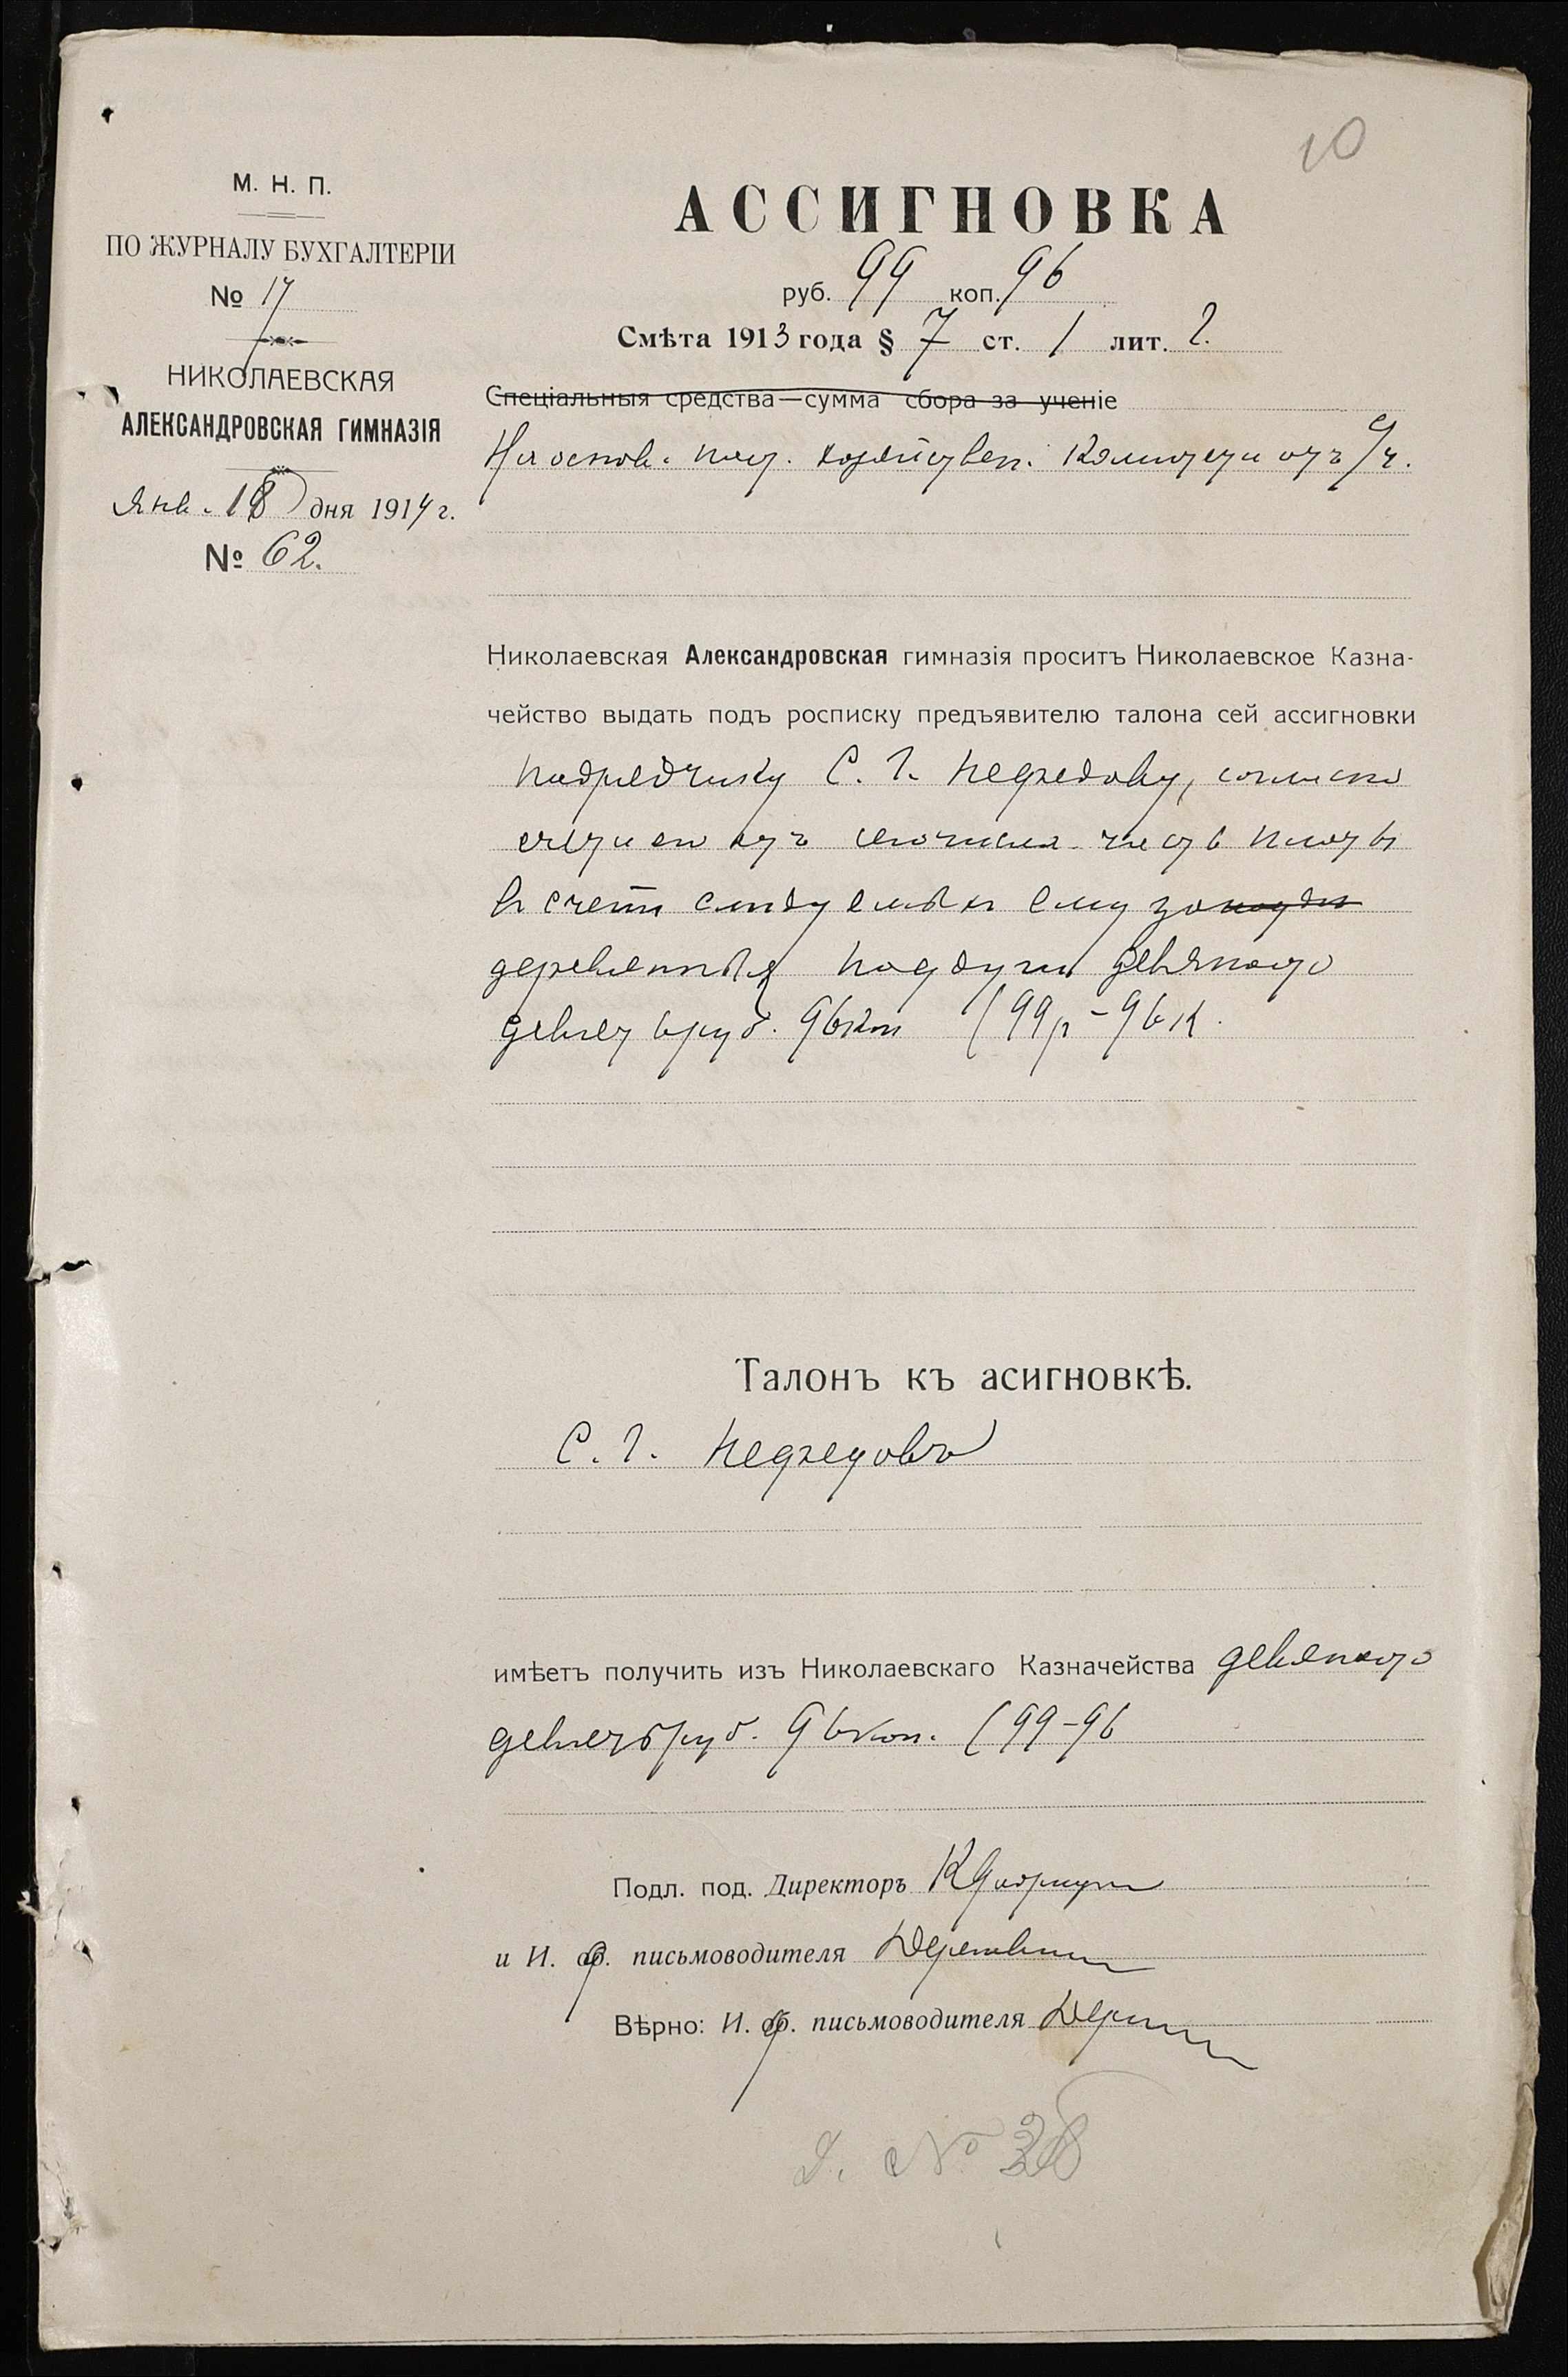 10
М. Н. П.
ПО ЖУРНАЛУ БУХГАЛТЕРІИ
№ 17
НИКОЛАЕВСКАЯ
АЛЕКСАНДРОВСКАЯ ГИМНАЗІЯ
Янв. 18 дня 1914 г.
№ 62.
АССИГНОВКА
руб. 99 коп. 96
Смѣта 1913 года § 7 ст. 1 лит. 2.
Спеціальныя средства—сумма сбора за ученіе
На основ. пост. хозяйствен. Комитета отъ
Николаевская Александровская гимназія проситъ Николаевское Казна-
чейство выдать подъ росписку предъявителю талона сей ассигновки
подрядчику С. Г. согласно
счета его отъ часть платы
въ счетъ слѣдуемыхъ ему за
деревянныя девяносто
девять руб. 96 коп (99 р - 96 к.
Талонъ къ асигновкѣ.
С. Г.
имѣетъ получить изъ Николаевскаго Казначейства девяносто
девять руб. 96 коп. (99-96
Подл. под. Директоръ
и И. об. письмоводителя
Вѣрно: И. об. письмоводителя
№